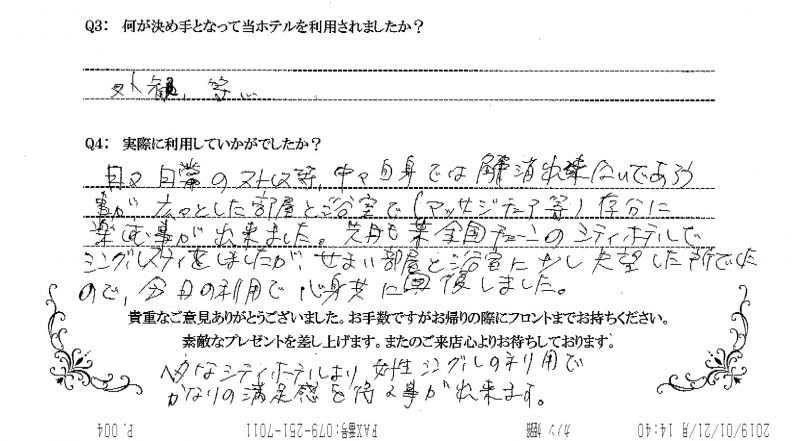 Q3: 何が決め手となって当ホテルを利用されましたか?
外観、等…
Q4: 実際に利用していかがでしたか?
日々日常のストレス等、中々自身では解消出来ないであろう
事が、広々とした部屋と浴室で(マッサージチェア等)存分に
楽しむ事が出来ました。先月も某全国チェーンのシティホテルで
シングルステイをしましたが、せまい部屋と浴室に少し失望した所でした
ので、今日の利用で心身共に回復しました。
貴重なご意見ありがとうございました。お手数ですがお帰りの際にフロントまでお持ちください。
素敵なプレゼントを差し上げます。またのご来店心よりお待ちしております。
ヘタなシティホテルより女性シングルの利用で
かなりの満足感を得る事が出来ます。
2019/01/21/月 14:40 カノン FAX番号:079-251-7011 P. 004